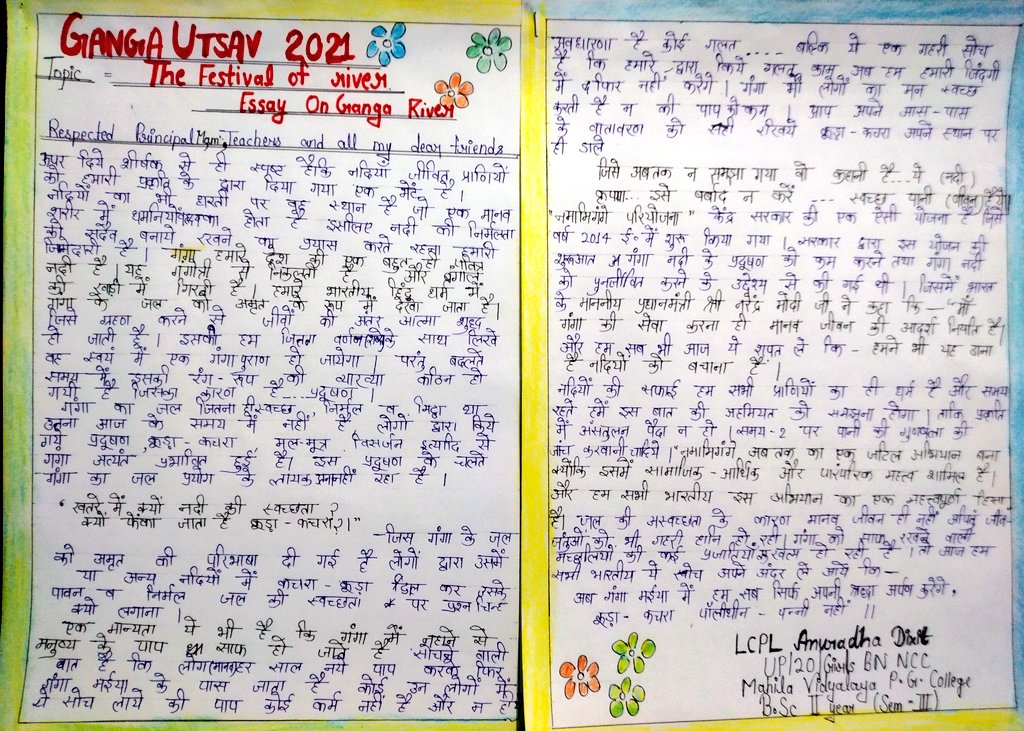 GANGA UTSAV 2021
Topic = The Festival of river
Essay On Ganga River
Respected Principal Mam, Teachers and all my dear friends
ऊपर दिये शीर्षक से ही स्पष्ट है कि नदियाँ जीवित प्राणियों
को हमारी प्रकृति के द्वारा दिया गया एक भेंट है।
नदियों का भी धरती पर वह स्थान है जो एक मानव
शरीर में धमनियों का होता है इसीलिए नदी की निर्मलता
को सदैव बनाये रखने का प्रयास करते रहना हमारी
जिम्मेदारी है। गंगा हमारे देश की एक बहुत ही पवित्र
नदी है। यह गंगोत्री से निकलती है और बंगाल
की खाड़ी में गिरती है। हमारे भारतीय हिंदू धर्म में
गंगा के जल को अमृत के रूप में देखा जाता है।
जिसे ग्रहण करने से जीवों की अंतर आत्मा शुद्ध
हो जाती है। इसको हम जितना वर्णन के साथ लिखे
वह स्वयं में एक गंगा पुराण हो जायेगा। परंतु बदलते
समय में इसकी रंग-रूप की व्याख्या कठिन हो
गयी है जिसका कारण है...प्रदूषण।
गंगा का जल जितना ही स्वच्छ निर्मल व मिठा था
उतना आज के समय में नहीं है लोगों द्वारा किये
गये प्रदूषण, कूड़ा-कचरा मूल-मूत्र विसर्जन इत्यादि से
गंगा अत्यंत प्रभावित हुई है। इस प्रदूषण के चलते
गंगा का जल प्रयोग के लायक नहीं रहा है।
"खतरे में क्यों नदी की स्वच्छता?
क्यों फेंका जाता है कूड़ा-कचरा?।"
-जिस गंगा के जल
को अमृत की परिभाषा दी गई है लोगों द्वारा उसमें
या अन्य नदियों में कचरा-कूड़ा डाल कर उसके
पावन व निर्मल जल की स्वच्छता पर प्रश्न चिन्ह
क्यों लगाना।
एक मान्यता ये भी है कि गंगा में नहाने से
मनुष्य के पाप साफ हो जाते है सोचने वाली
बात है कि लोग हर साल नये पाप करके फिर
गंगा मईया के पास जाता है कोई उन लोगों में
ये सोच लाये की पाप कोई कर्म नहीं है और न ही
अवधारणा है कोई गलत .... बल्कि ये एक गहरी सोच
है कि हमारे द्वारा किये गलत काम अब हम हमारी जिंदगी
में दोफिर नहीं करेंगे। गंगा भी लोगों का मन स्वच्छ
करती है न की पाप को कम। आप अपने आस-पास
के वातावरण को सही रखिये कूड़ा-कचरा अपने स्थान पर
ही डाले
जिसे अबतक न समझा गया वो कहानी है...ये (नदी)
कृपया... इसे बर्बाद न करें ... स्वच्छ पानी (जीवन) है ये।
"नमामिगंगे परियोजना" केंद्र सरकार की एक ऐसी योजना है जिसे
वर्ष 2014 ई० में शुरू किया गया। सरकार द्वारा इस योजन की
शुरूआत गंगा नदी के प्रदूषण को कम करने तथा गंगा नदी
को पुनर्जीवित करने के उद्देश्य से की गई थी। जिसमें भारत
के माननीय प्रधानमंत्री श्री नरेंद्र मोदी जी ने कहा कि -"माँ
गंगा की सेवा करना ही मानव जीवन की आदर्श नियति है।
और हम सब भी आज ये शपत ले कि - हमने भी यह ठाना
है नदियों को बचाना है।
नदियों की सफाई हम सभी प्राणियों का ही धर्म है और समय
रहते हमें इस बात की अहमियत को समझना होगा। ताकि प्रकृति
में असंतुलन पैदा न हो। समय-2 पर पानी की गुणवत्ता की
जांच करवानी चाहिये। "नमामिगंगे अब तक का एक जटिल अभियान बना
क्योंकि इसमें सामाजिक-आर्थिक और पारंपरिक महत्व शामिल है।
और हम सभी भारतीय इस अभियान का एक महत्वपूर्ण हिस्सा
है। जल की अस्वच्छता के कारण मानव जीवन ही नहीं अपितु जीव-
जंतुओं को भी गहरी हानि हो रही। गंगा को साफ रखने वाली
मच्छलियों की कई प्रजातियाँ खत्म हो रही है। तो आज हम
सभी भारतीय ये सोच अपने अंदर ले आये कि-
अब गंगा मईया में हम सब सिर्फ अपनी श्रद्धा अर्पण करेंगे,
कूड़ा-कचरा पॉलीथीन-पन्नी नहीं।।
LCPL Anuradha Dixit
UP/20/Girls BN NCC
Mahila Vidyalaya P.G. College
B.Sc II year (Sem-III)